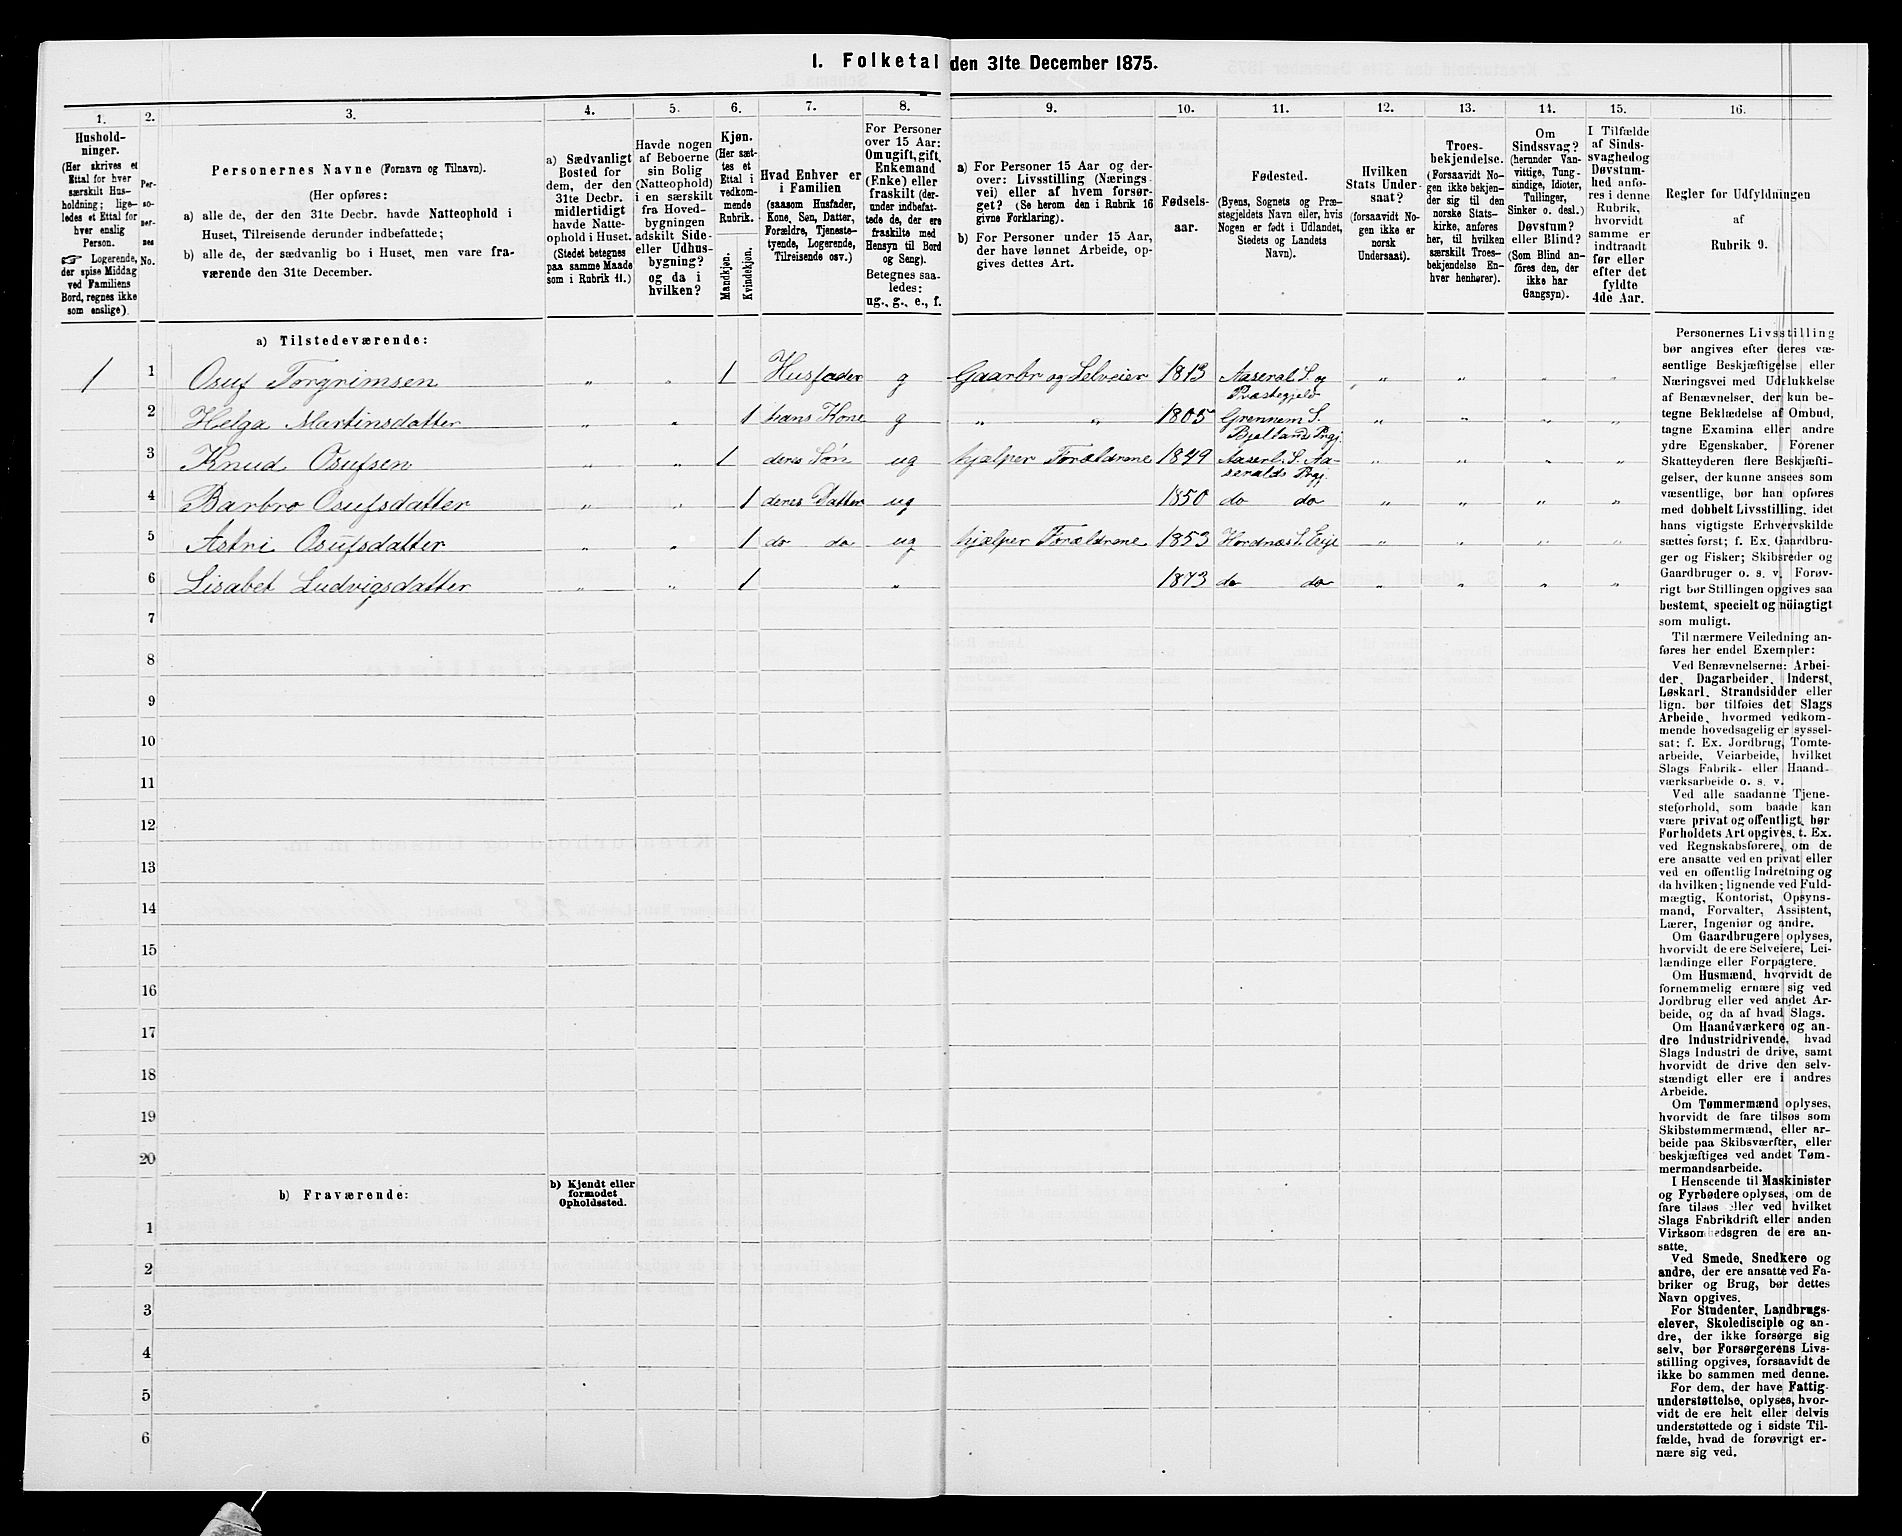 1. Folketal den 31te December 1875.
1.
Hushold-
ninger.
(Her skrives et
Ettal for hver
særskilt Hus-
holdning; lige-
ledes et Ettal for
hver enslig
Person.
☞ Logerende,
der spise Middag
ved Familiens
Bord, regnes ikke
som enslige).
2.
Per-
so-
ner-
nes
No.
3.
Personernes Navne (Fornavn og Tilnavn).
(Her opføres:
a) alle de, der den 31te Decbr. havde Natteophold i
Huset, Tilreisende derunder indbefattede;
b) alle de, der sædvanlig bo i Huset, men vare fra-
værende den 31te December.
4.
a) Sædvanligt
Bosted for
dem, der den
31te Decbr.
midlertidigt
havde Natte-
ophold i Huset.
(Stedet betegnes
paa samme Maade
som i Rubrik 11.)
5.
Havde nogen
af Beboerne
sin Bolig
(Natteophold)
i en særskilt
fra Hoved-
bygningen
adskilt Side-
eller Udhus-
bygning?
og da i
hvilken?
6.
Kjøn.
(Her sæt-
tes et
Ettal i
vedkom-
mende
Rubrik.
Mandkjøn.
Kvindekjøn.
7.
Hvad Enhver er
i Familien
(saasom Husfader,
Kone, Søn, Datter,
Forældre, Tjeneste-
tyende, Logerende,
Tilreisende osv.)
8.
For Personer
over 15 Aar:
Om ugift, gift,
Enkemand
(Enke) eller
fraskilt (der-
under indbefat-
tede de, der ere
fraskilte med
Hensyn til Bord
og Seng).
Betegnes saa-
ledes:
ug., g., e., f.
9.
a) For Personer 15 Aar og der-
over: Livsstilling (Nærings-
vei) eller af hvem forsør-
get? (Se herom den i Rubrik 16
givne Forklaring).
b) For Personer under 15 Aar,
der have lønnet Arbeide, op-
gives dettes Art.
10.
Fødsels-
aar.
11.
Fødested.
(Byens, Sognets og Præ-
stegjeldets Navn eller, hvis
Nogen er født i Udlandet,
Stedets og Landets
Navn).
12.
Hvilken
Stats Under-
saat?
(forsaavidt No-
gen ikke er
norsk
Undersaat).
13.
Troes-
bekjendelse.
(Forsaavidt No-
gen ikke bekjen-
der sig til den
norske Stats-
kirke, anføres
her, til hvilken
særskilt Troes-
bekjendelse En-
hver henhører).
14.
Om
Sindssvag?
(herunder Van-
vittige, Tung-
sindige, Idioter,
Tullinger,
Sinker o. desl.)
Døvstum?
eller Blind?
(Som Blind an-
føres den, der
ikke har
Gangsyn).
15.
I Tilfælde
af Sinds-
svaghed og
Døvstum-
hed anfø-
res i denne
Rubrik,
hvorvidt
samme er
indtraadt
før eller
efter det
fyldte
4de Aar.
16.
Regler for Udfyldningen
af
Rubrik 9.
a) Tilstedeværende:
1 1 Osuf Torgrimsen „ „ 1 Husfader g Gaarbr og Selveier 1813 Aaseral S. og Præstegjeld „ „ „ „
2 Helga Martinsdatter „ „ 1 hans Kone g „ „ 1805 Grennem S. Bjelland Prgj. „ „ „ „
3 Knud Osufsen „ „ 1 deres Søn ug hjælper Forældrene 1849 Aaserl. S. Aa-seralds Prgj. „ „ „ „
4 Barbro Osufsdatter „ „ 1 deres Datter ug 1850 do do „ „ „ „
5 Astri Osufsdatter „ „ 1 do do ug hjælper Forældrene 1853 Hordnæs S. Evje „ „ „ „
6 Lisabet Ludvigsdatter „ „ 1 „ 1873 do do „ „ „ „
7
8
9
10
11
12
13
14
15
16
17
18
19
20
b) Fraværende:
b) Kjendt eller
formodet
Opholdssted.
1
2
3
4
5
6
Personernes Livsstilling
bør angives efter deres væ-
sentlige Beskjæftigelse eller
Næringsvei med Udelukkelse
af Benævnelser, der kun be-
tegne Beklædelse af Ombud,
tagne Examina eller andre
ydre Egenskaber. Forener
Skatteyderen flere Beskjæfti-
gelser, der kunne ansees som
væsentlige, bør han opføres
med dobbelt Livsstilling, idet
hans vigtigste Erhvervskilde
sættes først; f. Ex. Gaardbru-
ger og Fisker; Skibsreder og
Gaardbruger o. s. v. Forøv-
rigt bør Stillingen opgives saa
bestemt, specielt og nöiagtigt
som muligt.
Til nærmere Veiledning an-
føres her endel Exempler:
Ved Benævnelserne: Arbei-
der, Dagarbeider, Inderst,
Løskarl, Strandsidder eller
lign. bør tilføies det Slags
Arbeide, hvormed vedkom-
mende hovedsagelig er syssel-
sat; f. Ex. Jordbrug, Tomte-
arbeide, Veiarbeide, hvilket
Slags Fabrik- eller Haand-
værksarbeide o. s. v.
Ved alle saadanne Tjene-
steforhold, som baade kan
være privat og offentligt, bør
Forholdets Art opgives, t. Ex.
ved Regnskabsførere, om de
ere ansatte ved en privat eller
ved en offentlig Indretning og
da hvilken; lignende ved Fuld-
mægtig, Kontorist, Opsyns-
mand, Forvalter, Assistent,
Lærer, Ingeniør og andre.
Om Gaardbrugere oplyses,
hvorvidt de ere Selveiere, Lei-
lændinge eller Forpagtere.
Om Husmænd, hvorvidt de
fornemmelig ernære sig ved
Jordbrug eller ved andet Ar-
beide, og da af hvad Slags.
Om Haandværkere og an-
dre Industridrivende, hvad
Slags Industri de drive, samt
hvorvidt de drive den selv-
stændigt eller ere i andres
Arbeide.
Om Tømmermænd oplyses,
hvorvidt de fare tilsøs som
Skibstømmermænd, eller ar-
beide paa Skibsværfter, eller
beskjæftiges ved andet Tøm-
mermandsarbeide.
I Henseende til Maskinister
og Fyrbødere oplyses, om de
fare tilsøs eller ved hvilket
Slags Fabrikdrift eller anden
Virksomhedsgren de ere an-
satte.
Ved Smede, Snedkere og
andre, der ere ansatte ved Fa-
briker og Brug, bør dettes
Navn opgives.
For Studenter, Landbrugs-
elever, Skoledisciple og an-
dre, der ikke forsørge sig
selv, bør Forsørgerens Livs-
stilling opgives, forsaavidt de
ikke bo sammen med denne.
For dem, der have Fattig-
understøttelse, oplyses, hvor-
vidt de ere helt eller delvis
understøttede og i sidste Til-
fælde, hvad de forøvrigt er-
nære sig ved.